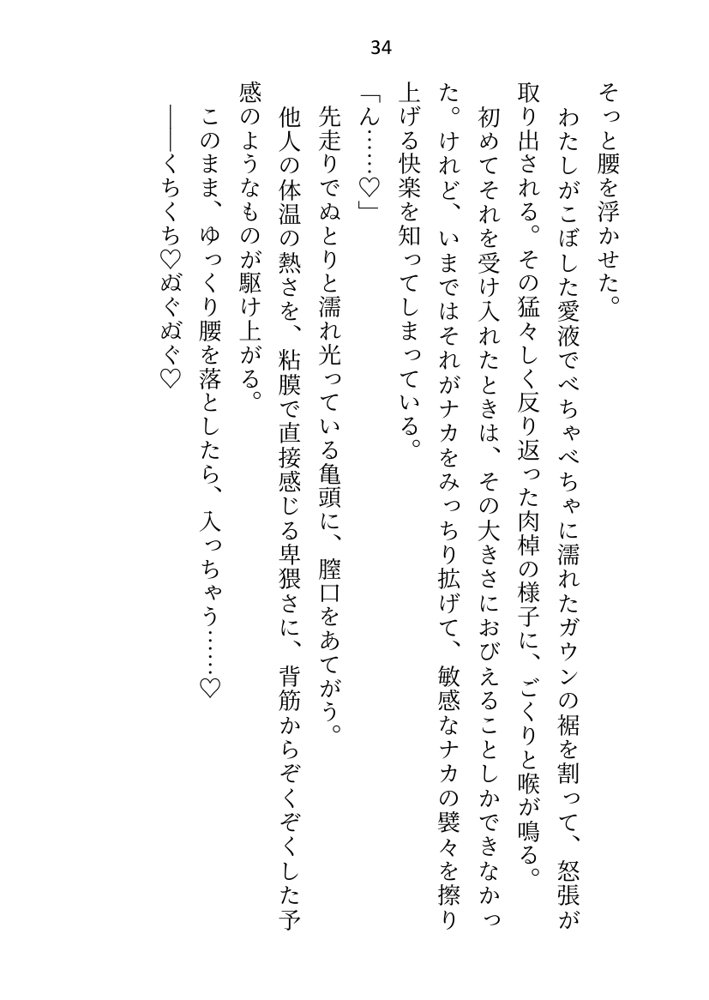 34
そっと腰を浮かせた。
　わたしがこぼした愛液でべちゃべちゃに濡れたガウンの裾を割って、怒張が
取り出される。その猛々しく反り返った肉棹の様子に、ごくりと喉が鳴る。
　初めてそれを受け入れたときは、その大きさにおびえることしかできなかっ
た。けれど、いまではそれがナカをみっちり拡げて、敏感なナカの襞々を擦り
上げる快楽を知ってしまっている。
「ん……♡」
　先走りでぬとりと濡れ光っている亀頭に、膣口をあてがう。
　他人の体温の熱さを、粘膜で直接感じる卑猥さに、背筋からぞくぞくした予
感のようなものが駆け上がる。
　このまま、ゆっくり腰を落としたら、入っちゃう……♡
　――くちくち♡ぬ゙ぐぬぐ♡